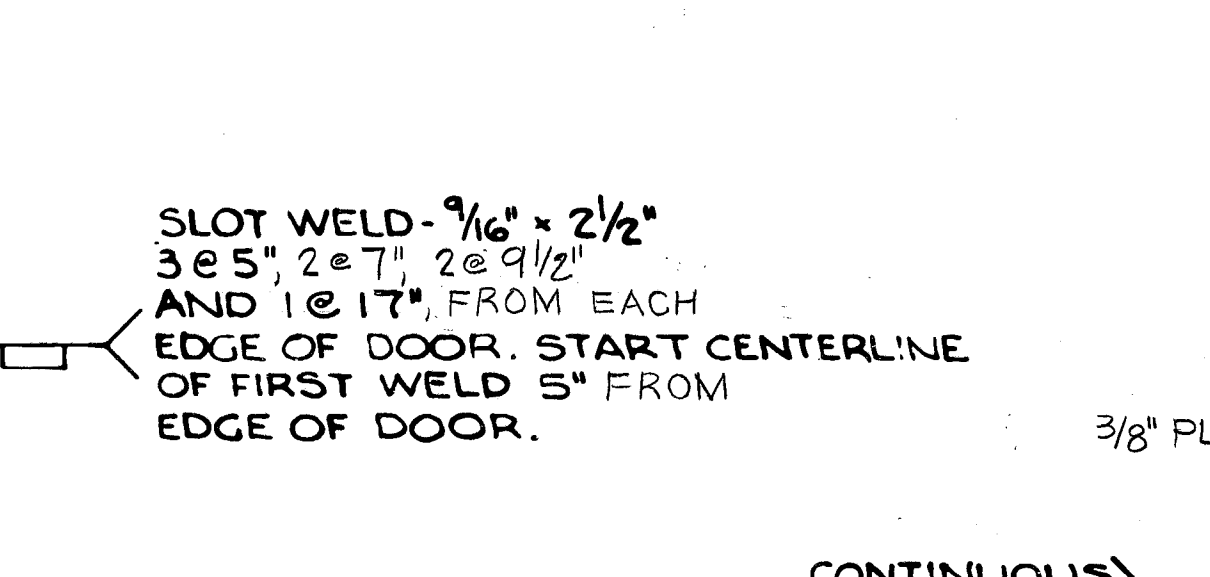 SLOT WELD - 9/16" x 2 1/2"
3 @ 5", 2 @ 7", 2 @ 9 1/2"
AND 1 @ 17", FROM EACH
EDGE OF DOOR. START CENTERLINE
OF FIRST WELD 5" FROM
EDGE OF DOOR.
3/8" PL
CONTINUOUS